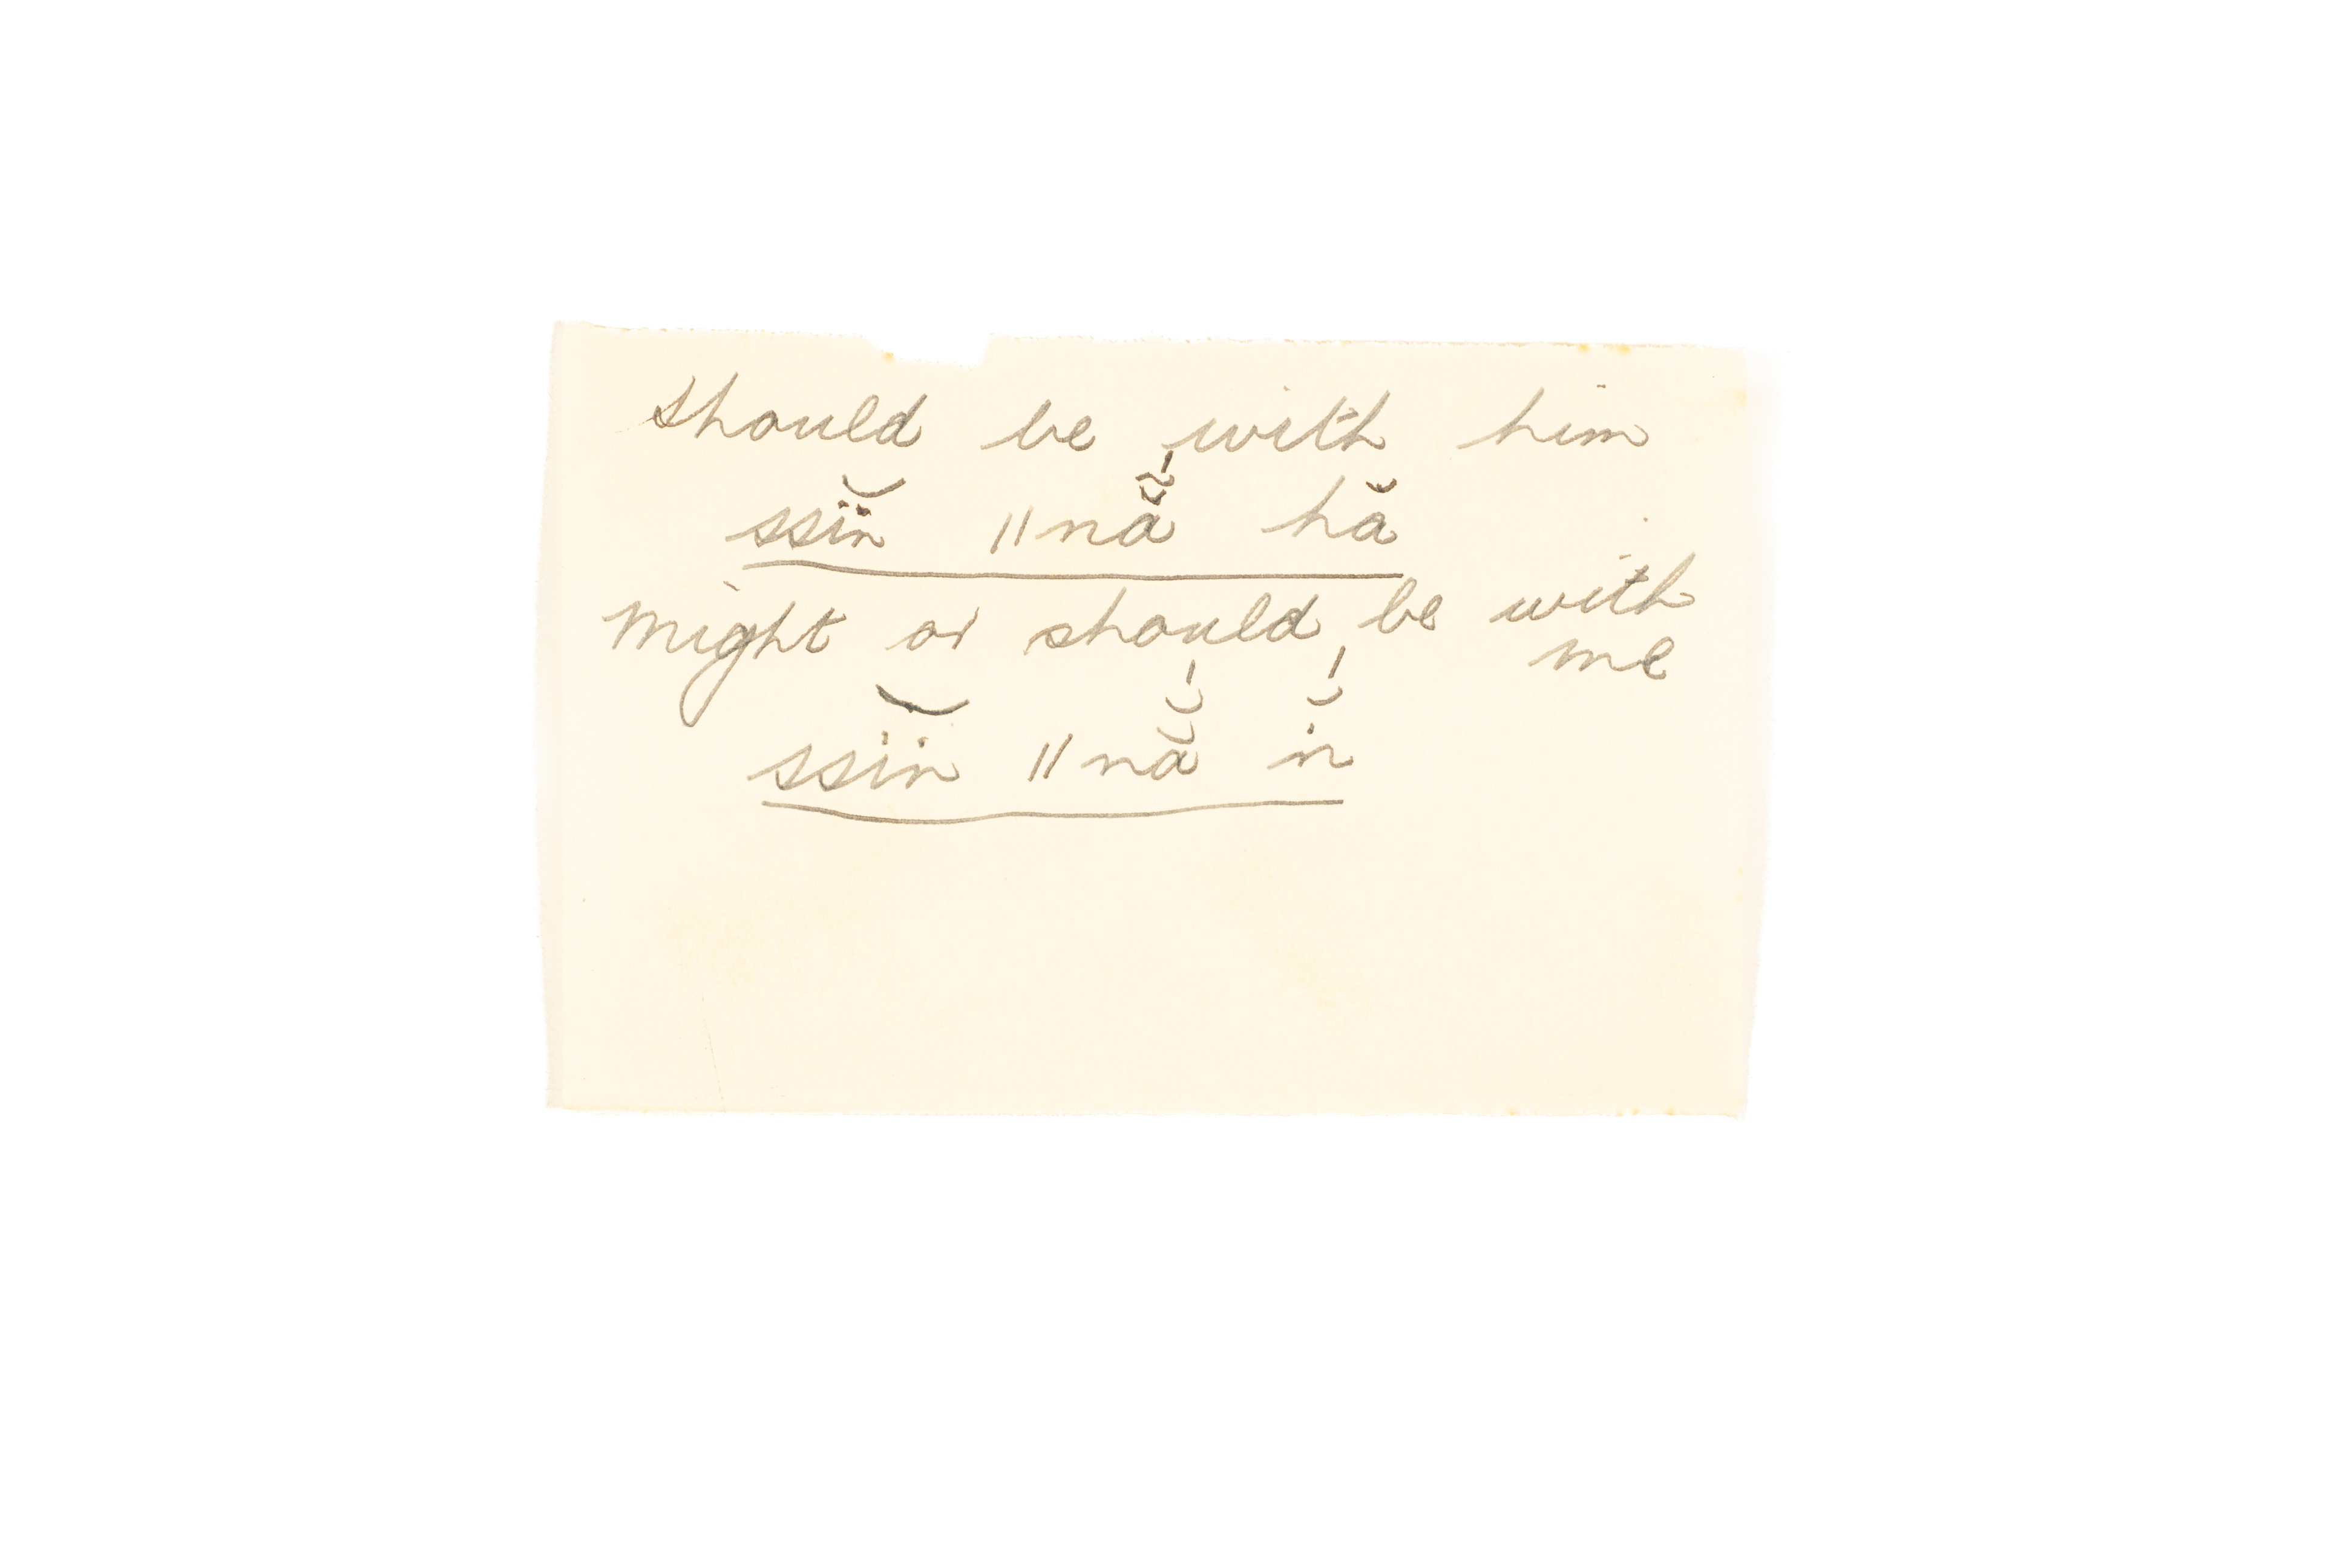 should be with him
ssĭĭn ||nă̰̆́ hă
might or should be with
me
ssĭĭn ||nă̆́ ĭ́n